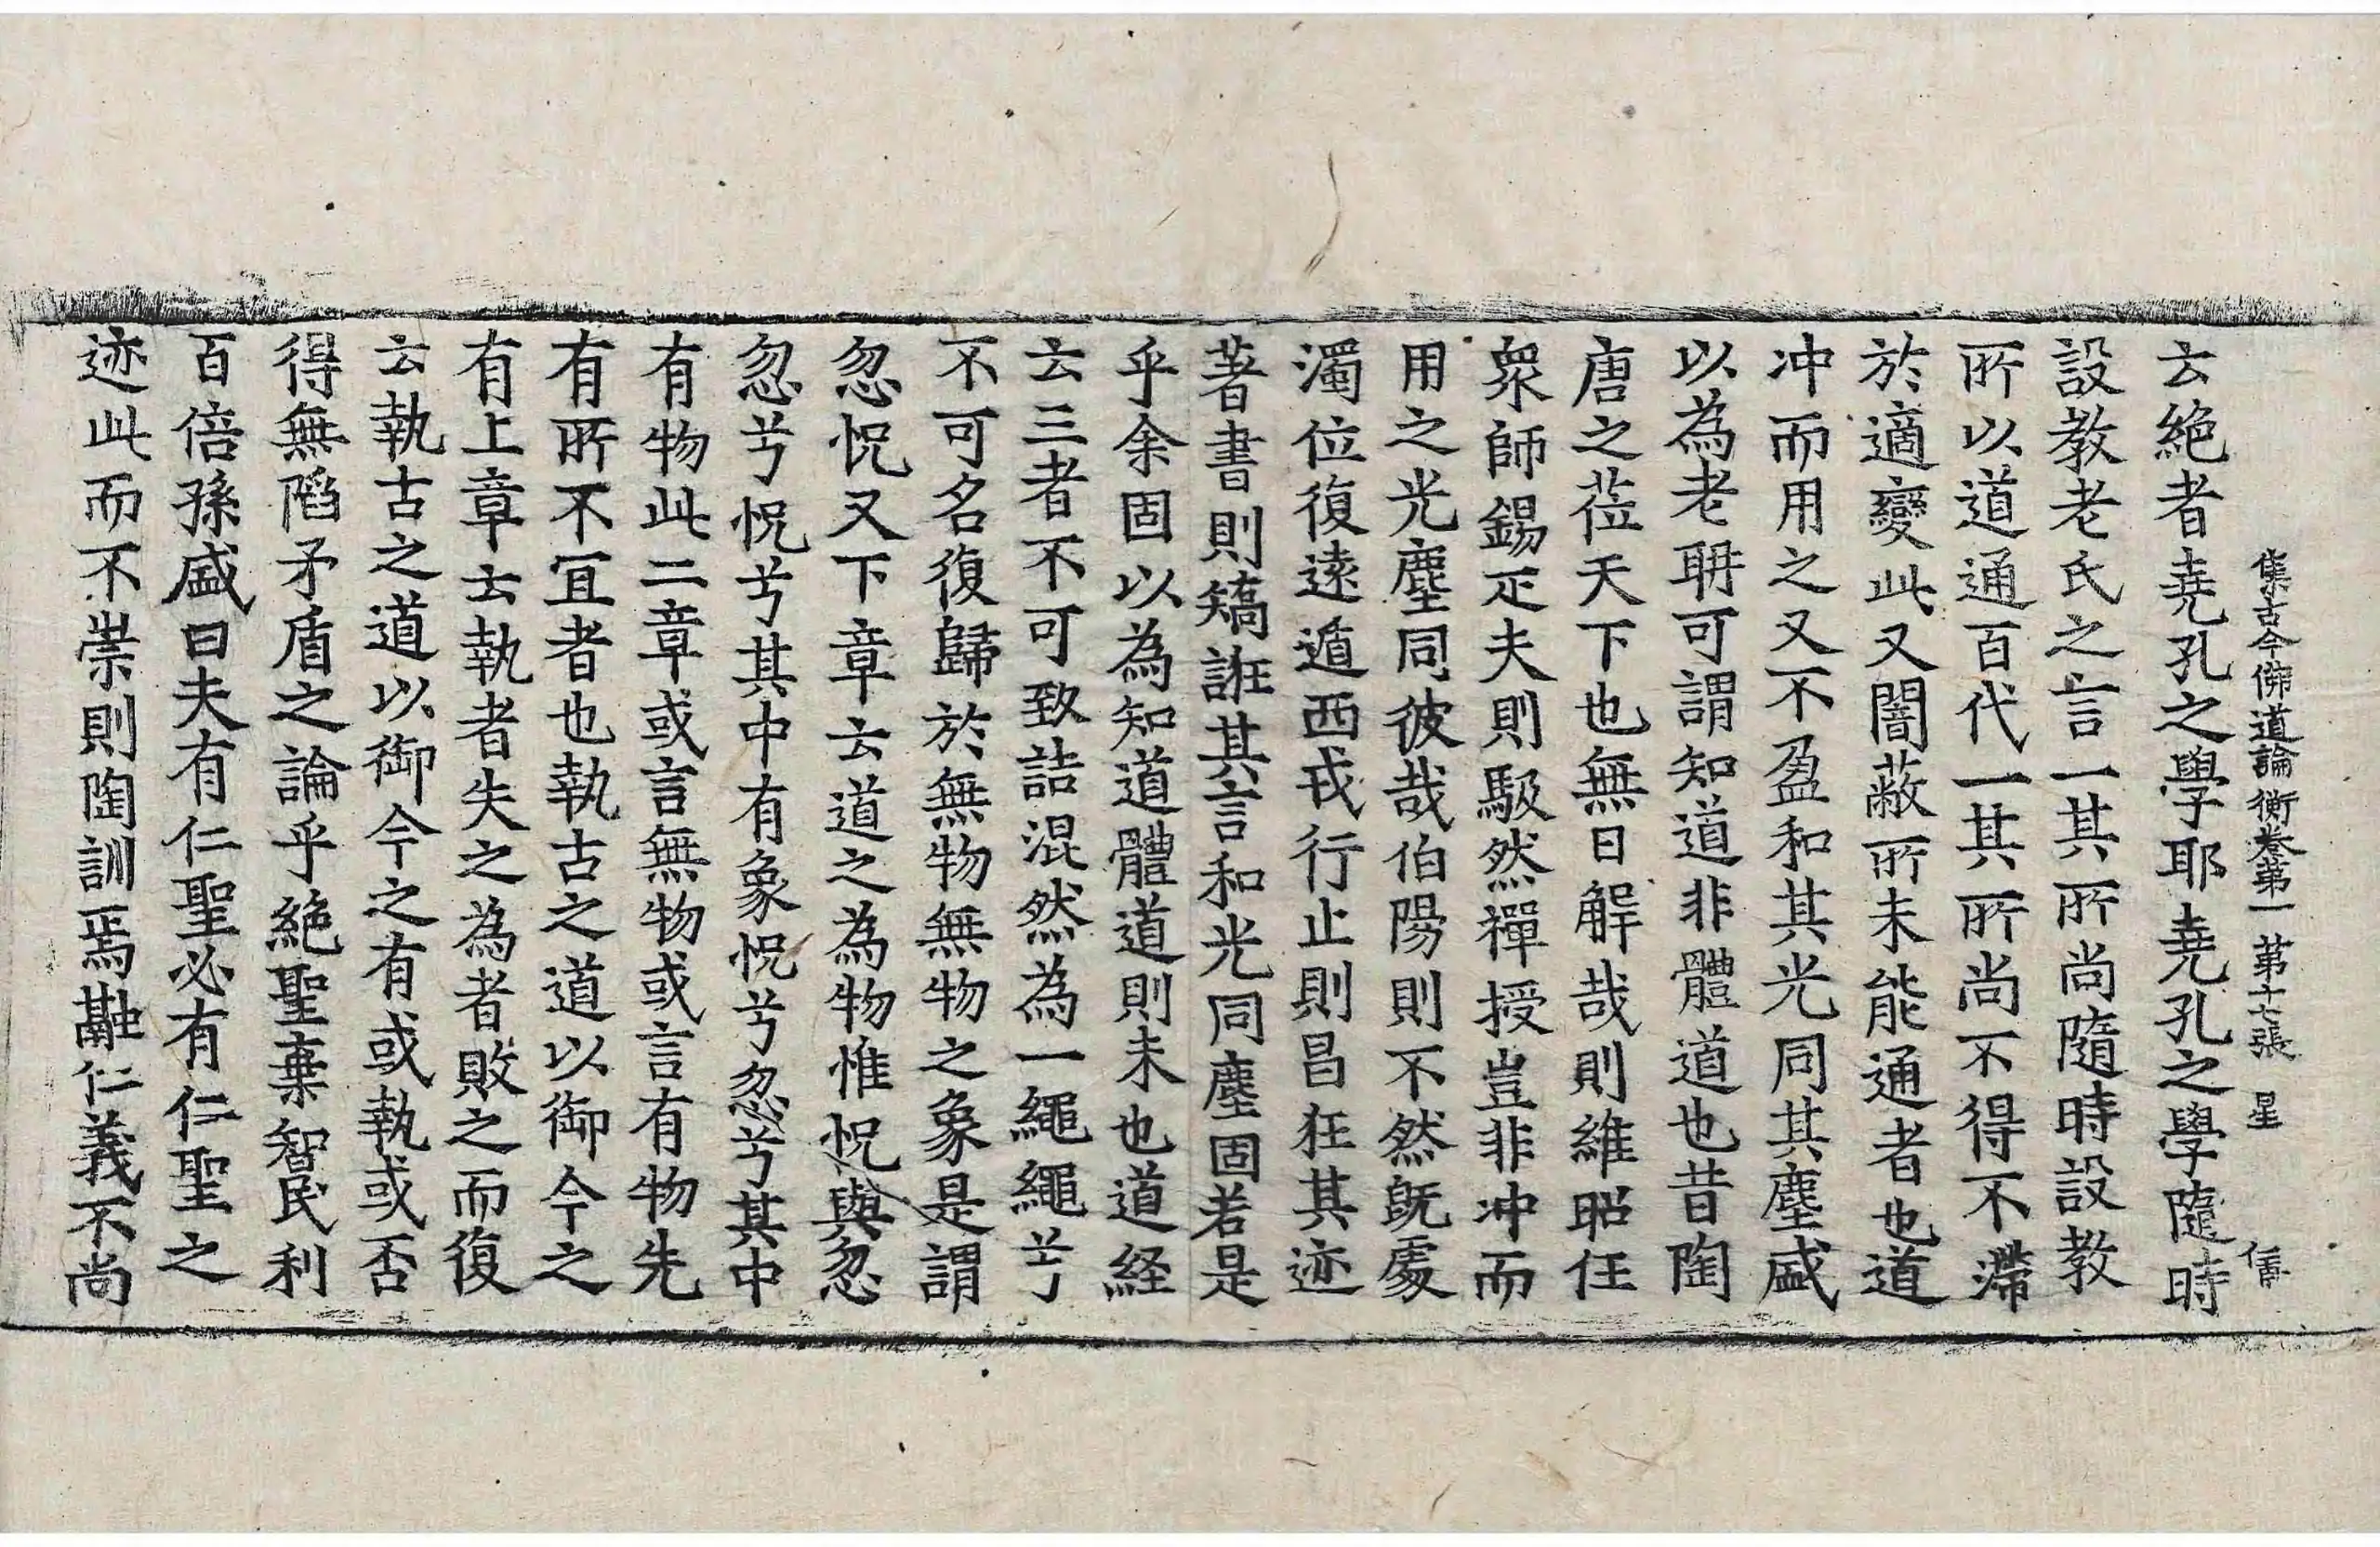 集古今佛道論衡卷第一 第十七張 星 信
云絶者堯孔之學耶堯孔之學隨時
設教老氏之言一其所尚隨時設教
所以道通百代一其所尚不得不滯
於適變此又闇蔽所未能通者也道
冲而用之又不盈和其光同其塵盛
以為老聃可謂知道非體道也昔陶
唐之莅天下也無日解哉則維昭任
衆師錫疋夫則馺然禪授豈非冲而
用之光塵同彼哉伯陽則不然旣處
濁位復遠遁西戎行止則昌狂其迹
著書則矯誑其言和光同塵固若是
乎余固以為知道體道則未也道経
云三者不可致詰混然為一繩繩兮
不可名復歸於無物無物之象是謂
忽怳又下章云道之為物惟怳與忽
忽兮怳兮其中有象怳兮忽兮其中
有物此二章或言無物或言有物先
有所不宜者也執古之道以御今之
有上章云執者失之為者敗之而復
云執古之道以御今之有或執或否
得無陷矛盾之論乎絶聖棄智民利
百倍孫盛曰夫有仁聖必有仁聖之
迹此而不崇則陶訓焉融仁義不尚